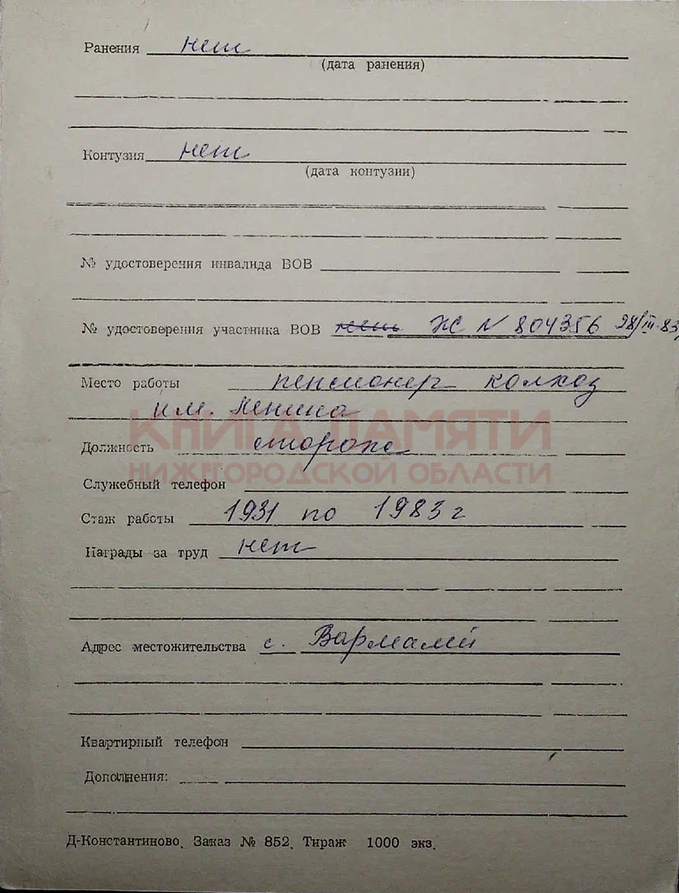 Ранения нет
(дата ранения)
Контузия нет
(дата контузии)
№ удостоверения инвалида ВОВ
№ удостоверения участника ВОВ нет ЖС N 804356 28/III-83
Место работы пенсионер колхоз
им. Ленина
КНИГА ПАМЯТИ
Должность сторож
НИЖЕГОРОДСКОЙ ОБЛАСТИ
Служебный телефон
Стаж работы 1931 по 1983 г
Награды за труд нет
Адрес местожительства с. Вармалей
Квартирный телефон
Дополнения:
Д-Константиново. Заказ № 852. Тираж 1000 экз.